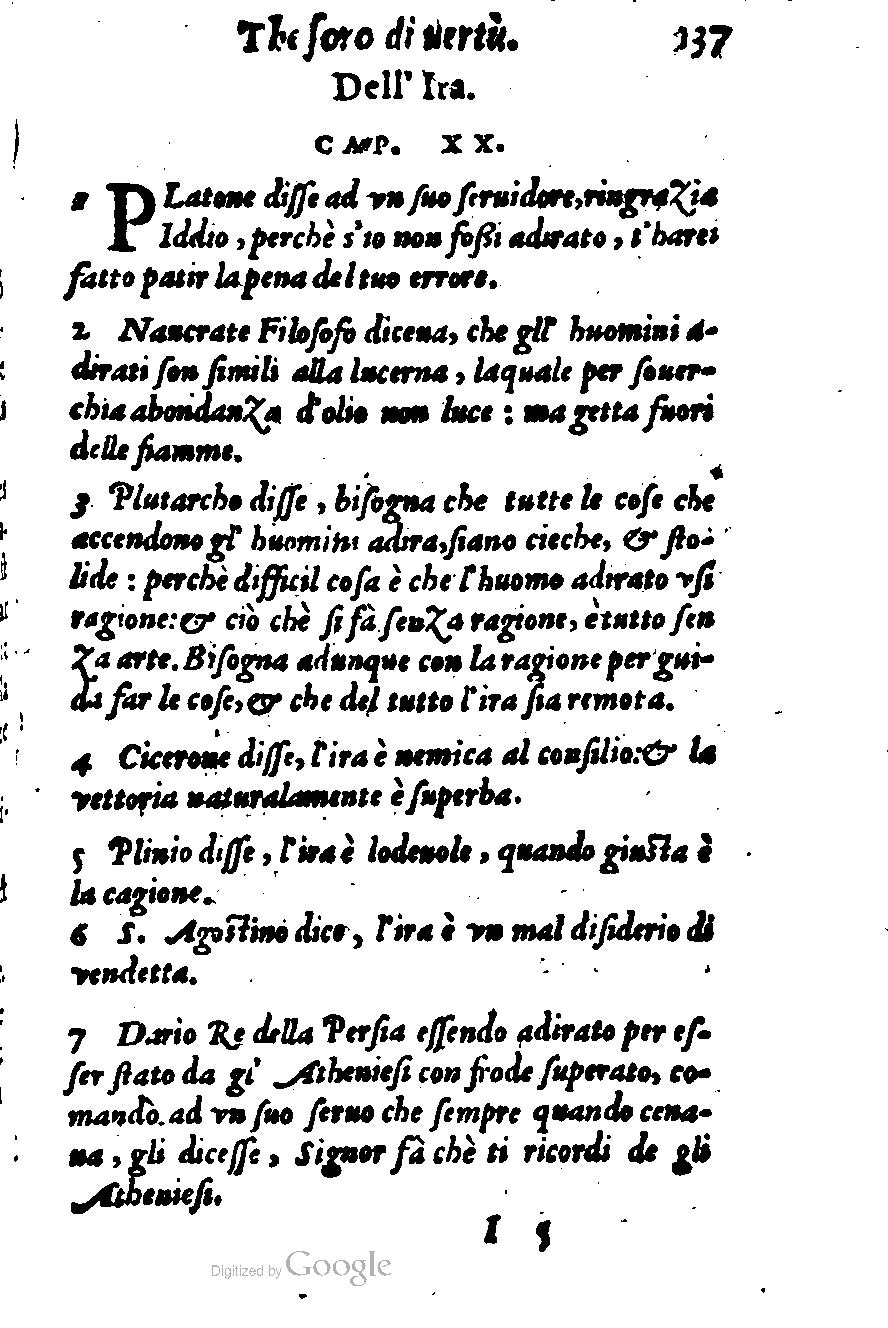 Thesoro di uertù. 137
Dell' Ira.
CAP. XX.
1 PLatone disse ad vn suo seruidore, ringrazia
Iddio, perchè s'io non fossi adirato, t'harei
fatto patir la pena del tuo errore.
2 Naucrate Filosofo diceua, che gll' huomini a-
dirati son simili alla lucerna, laquale per souer-
chia abondanza d'olio non luce : ma getta fuori
delle fiamme.
3 Plutarcho disse, bisogna che tutte le cose che
accendono gl' huomini adira, siano cieche, & sto-
lide : perchè difficil cosa è che l'huomo adirato vsi
ragione: & ciò chè si fà senza ragione, è tutto sen
za arte. Bisogna adunque con la ragione per gui-
da far le cose, & che del tutto l'ira sia remota.
4 Cicerone disse, l'ira è nemica al consilio: & la
vettoria naturalamente è superba.
5 Plinio disse, l'ira è lodeuole, quando giusta è
la cagione.
6 S. Agostino dice, l'ira è vn mal disiderio di
vendetta.
7 Dario Re della Persia essendo adirato per es-
ser stato da gl' Atheniesi con frode superato, co-
mandò ad vn suo seruo che sempre quando cena-
ua, gli dicesse, Signor fà chè ti ricordi de gli
Atheniesi.
I 5
Digitized by Google